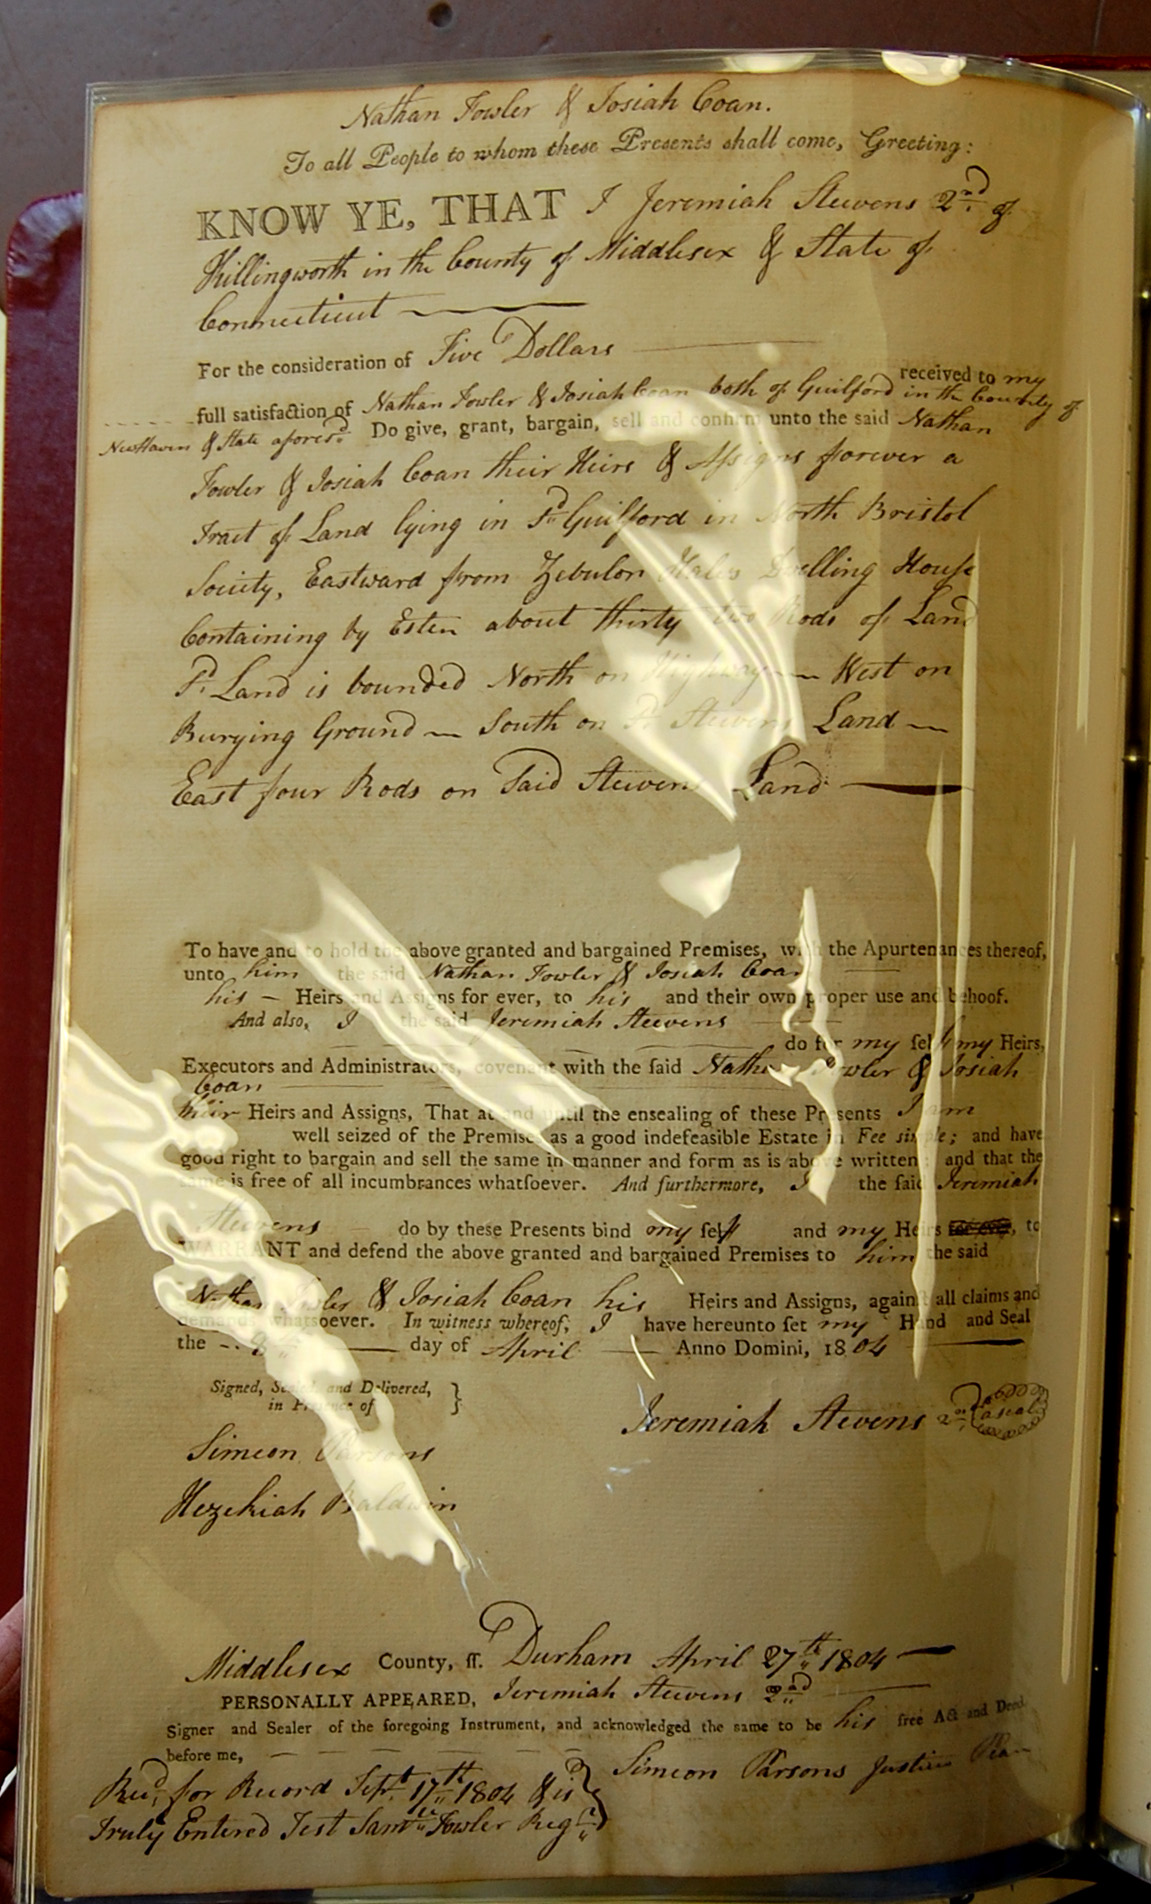 Nathan Fowler & Josiah Coan.
To all People to whom these Presents shall come, Greeting:
KNOW YE, THAT I Jeremiah Steevens 2nd of
Killingworth in the County of Middlesex & State of
Connecticut
For the consideration of Five Dollars
received to my
full satisfaction of Nathan Fowler & Josiah Coan both of Guilford in the County of
NewHaven & State aforesd. Do give, grant, bargain, sell and confirm unto the said Nathan
Fowler & Josiah Coan their Heirs & Assigns forever a
Tract of Land lying in Sd. Guilford in North Bristol
Society, Eastward from Zebulon Hales Dwelling House
Containing by Estem about thirty two Rods of Land
Sd. Land is bounded North on Highway — West on
Burying Ground — South on Sd. Steevens Land —
East four Rods on Said Steevens Land —
To have and to hold the above granted and bargained Premises, with the Apurtenances thereof,
unto him the said Nathan Fowler & Josiah Coan
his — Heirs and Assigns for ever, to his and their own proper use and behoof.
And also, I the said Jeremiah Steevens
do for my self my Heirs,
Executors and Administrators, covenant with the ſaid Nathan Fowler & Josiah
Coan
their Heirs and Assigns, That at and until the ensealing of these Presents I am
well seized of the Premises as a good indefeasible Estate in Fee simple; and have
good right to bargain and sell the same in manner and form as is above written; and that the
same is free of all incumbrances whatſoever. And furthermore, I the ſaid Jeremiah
Steevens do by these Presents bind my ſelf and my Heirs for ever, to
WARRANT and defend the above granted and bargained Premises to him the said
Nathan Fowler & Josiah Coan his Heirs and Assigns, against all claims and
demands whatsoever. In witness whereof, I have hereunto ſet my Hand and Seal
the 9th day of April Anno Domini, 1804
Signed, Sealed and Delivered,
in Presence of
Jeremiah Stevens 2nd a seal
Simeon Parsons
Hezekiah Baldwin
Middlesex County, ſſ. Durham April 27th 1804 —
PERSONALLY APPEARED, Jeremiah Steevens 2nd
Signer and Sealer of the foregoing Instrument, and acknowledged the same to be his free Act and Deed
before me, Simeon Parsons Justice Peace
Recd. for Record Sept. 17th 1804 & is
Truly Entered Test Saml. Fowler Regr.